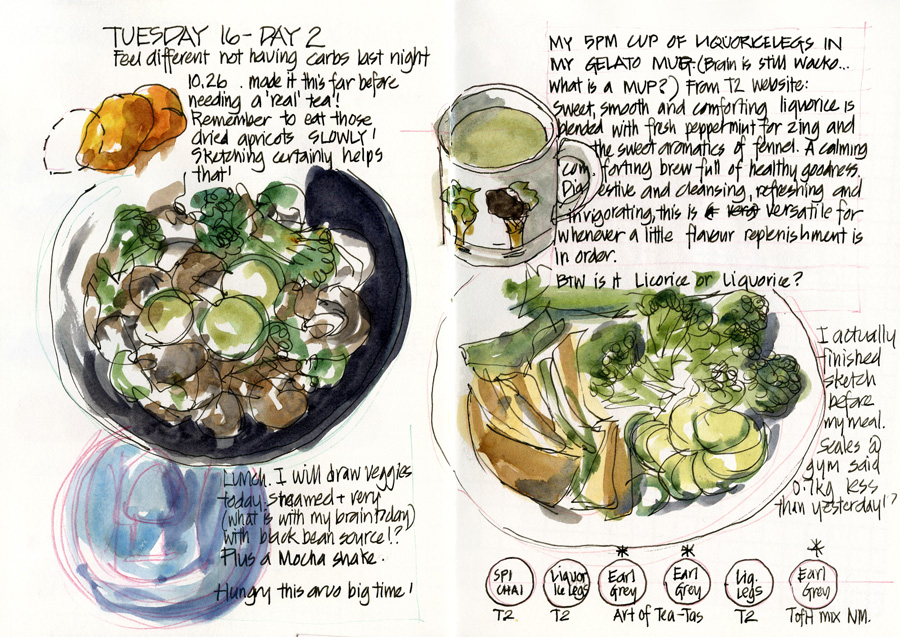 TUESDAY 16 - DAY 2
Feel different not having carbs last night
10.26 . made it this far before
needing a 'real' tea!
Remember to eat those
dried apricots SLOWLY!
Sketching certainly helps
that!
Lunch. I will draw veggies
today. steamed + very
(what is with my brain today)
with black bean source!?
Plus a Mocha shake.
Hungry this arvo big time!
MY 5PM CUP OF LIQUORICELEGS IN
MY GELATO MUG. (Brain is still wacko...
what is a MUP?) From T2 website:
Sweet, smooth and comforting liquorice is
blended with fresh peppermint for zing and
the sweet aromatics of fennel. A calming
com. forting brew full of healthy goodness.
Dig estive and cleansing, refreshing and
invigorating, this is versatile for
whenever a little flavour replenishment is
in order.
BTW is it Licorice or Liquorice?
I actually
finished
sketch
before
my meal.
Scales @
gym said
0.7kg less
than yesterday!?
SPI CHAI
T2
Liquor Ice Legs
T2
* Earl Grey
* Earl Grey
Art of Tea-Tas
Liq. Legs
T2
* Earl Grey
TofH mix NM.